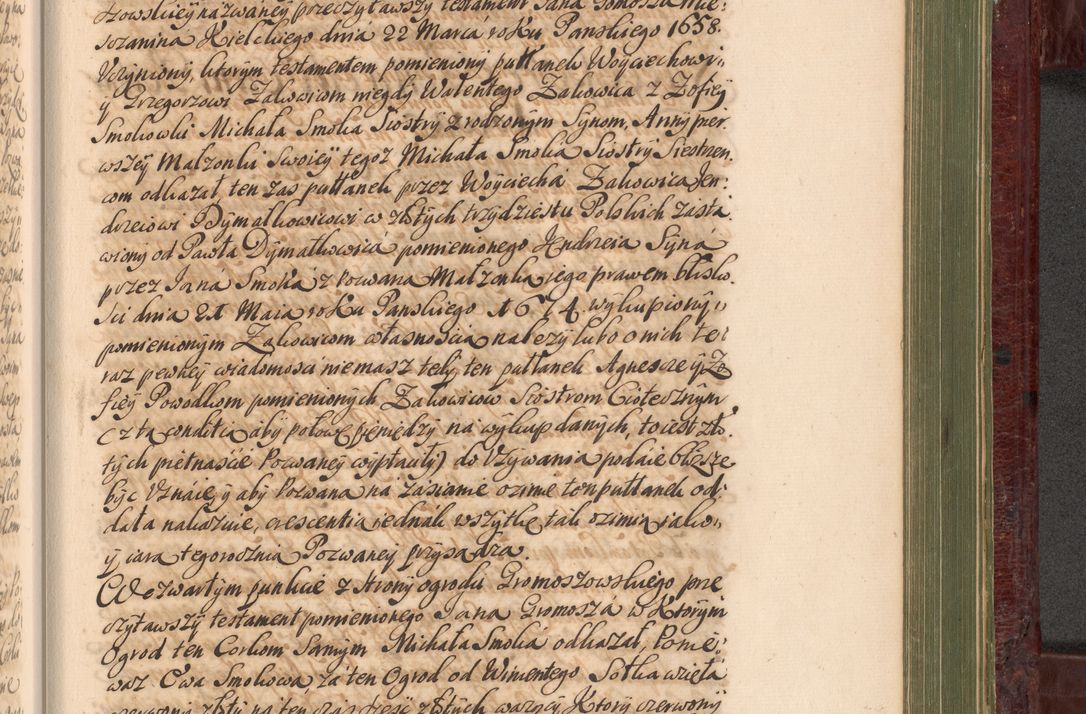 szowskiey nazwaney przeczytawszy testament Jana Gomosza Mie:
szczanina Kielckiego dnia 22 Marca roKu Panskiego 1658.
Vczyniony, ktorym testamentem pomieniony pułłanek Woyciechowi,
y Grzegorzowi Zakowicom niegdy Walentego Zakowica z Zofiey
Smolkowki Michała Smolka Siostry zrodzonym Synom, Anny pier
wszey Małzonki swoiey tegoz Michała Smolka Siostry Siestrzen,
com odkazał, ten zas pułłanek przez Woyciecha Zakowica Jen:
drzeiowi Dymalkowicowi w złotych trzydziestu Polskich zasta
wiony od Pawła Dymalkowica pomienionego Jendrzeia Syna
przez Jana Smolka z Pozwana Małzonka jego prawem blisko
sci dnia 21 Maia roKu Panskiego 1674 wykupiony,
pomienionym Zakowicom własnoscia nalezy lubo o nich te:
raz pewney wiadomosci niemasz tedy ten pułłanek Agneszce y Zo
fiey Powodkom pomienionych Zakowicow Siostrom Ciotecznym
(z ta conditią aby połowę pieniędzy na wykup danych, to iest zło,
tych pietnascie Pozwaney wypłaciły) do Vzywania podaie blizsze
byc Vznaie, y aby Pozwana na zasianie ozime ten pułłanek od,
dała nakazuie, crescentia iednak wszytkę tak ozimia jako,
y iara tegorocznia Pozwaney przysadza.
We czwartym punkcie z strony ogrodu Gromoszowskiego prze
czytawszy testament pomienionego Jana Gromosza w Ktorym
Ogrod ten Corkom Samym Michała Smolka odkazał, Ponie:
waz Ewa Smolkowa, za ten Ogrod od Wincentego Sołka wzieła
czerwony złoty na ten czas szesc złotych wazący Ktory czerwony